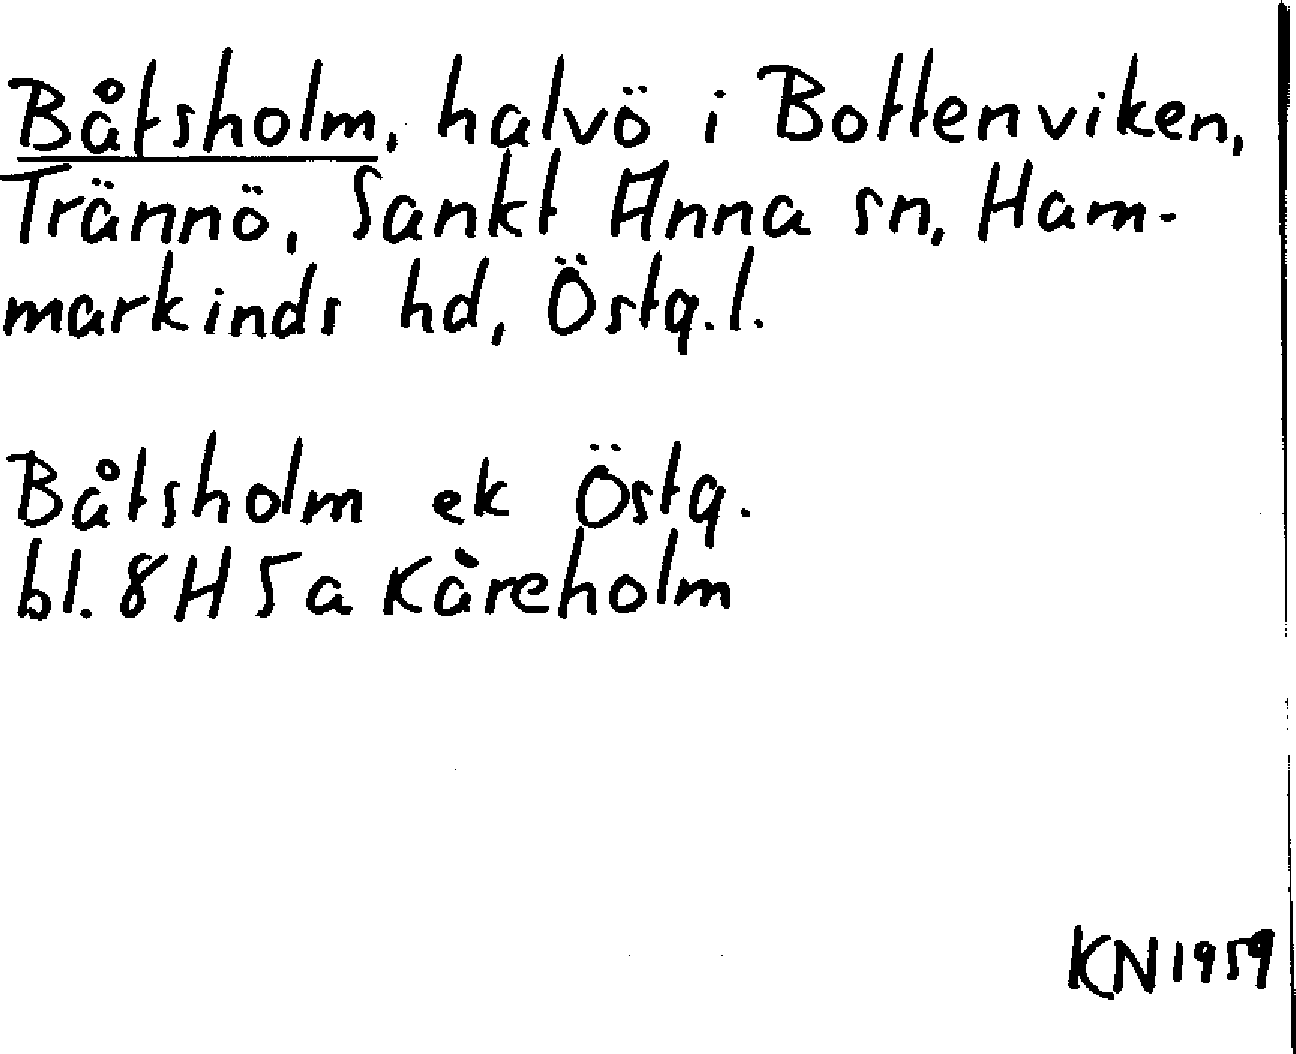 Båtsholm, halvö i Bottenviken,
Trännö, Sankt Anna sn, Ham-
markinds hd, Östg.l.
Båtsholm ek Östg.
bl. 8H 5a Kåreholm
KN1959